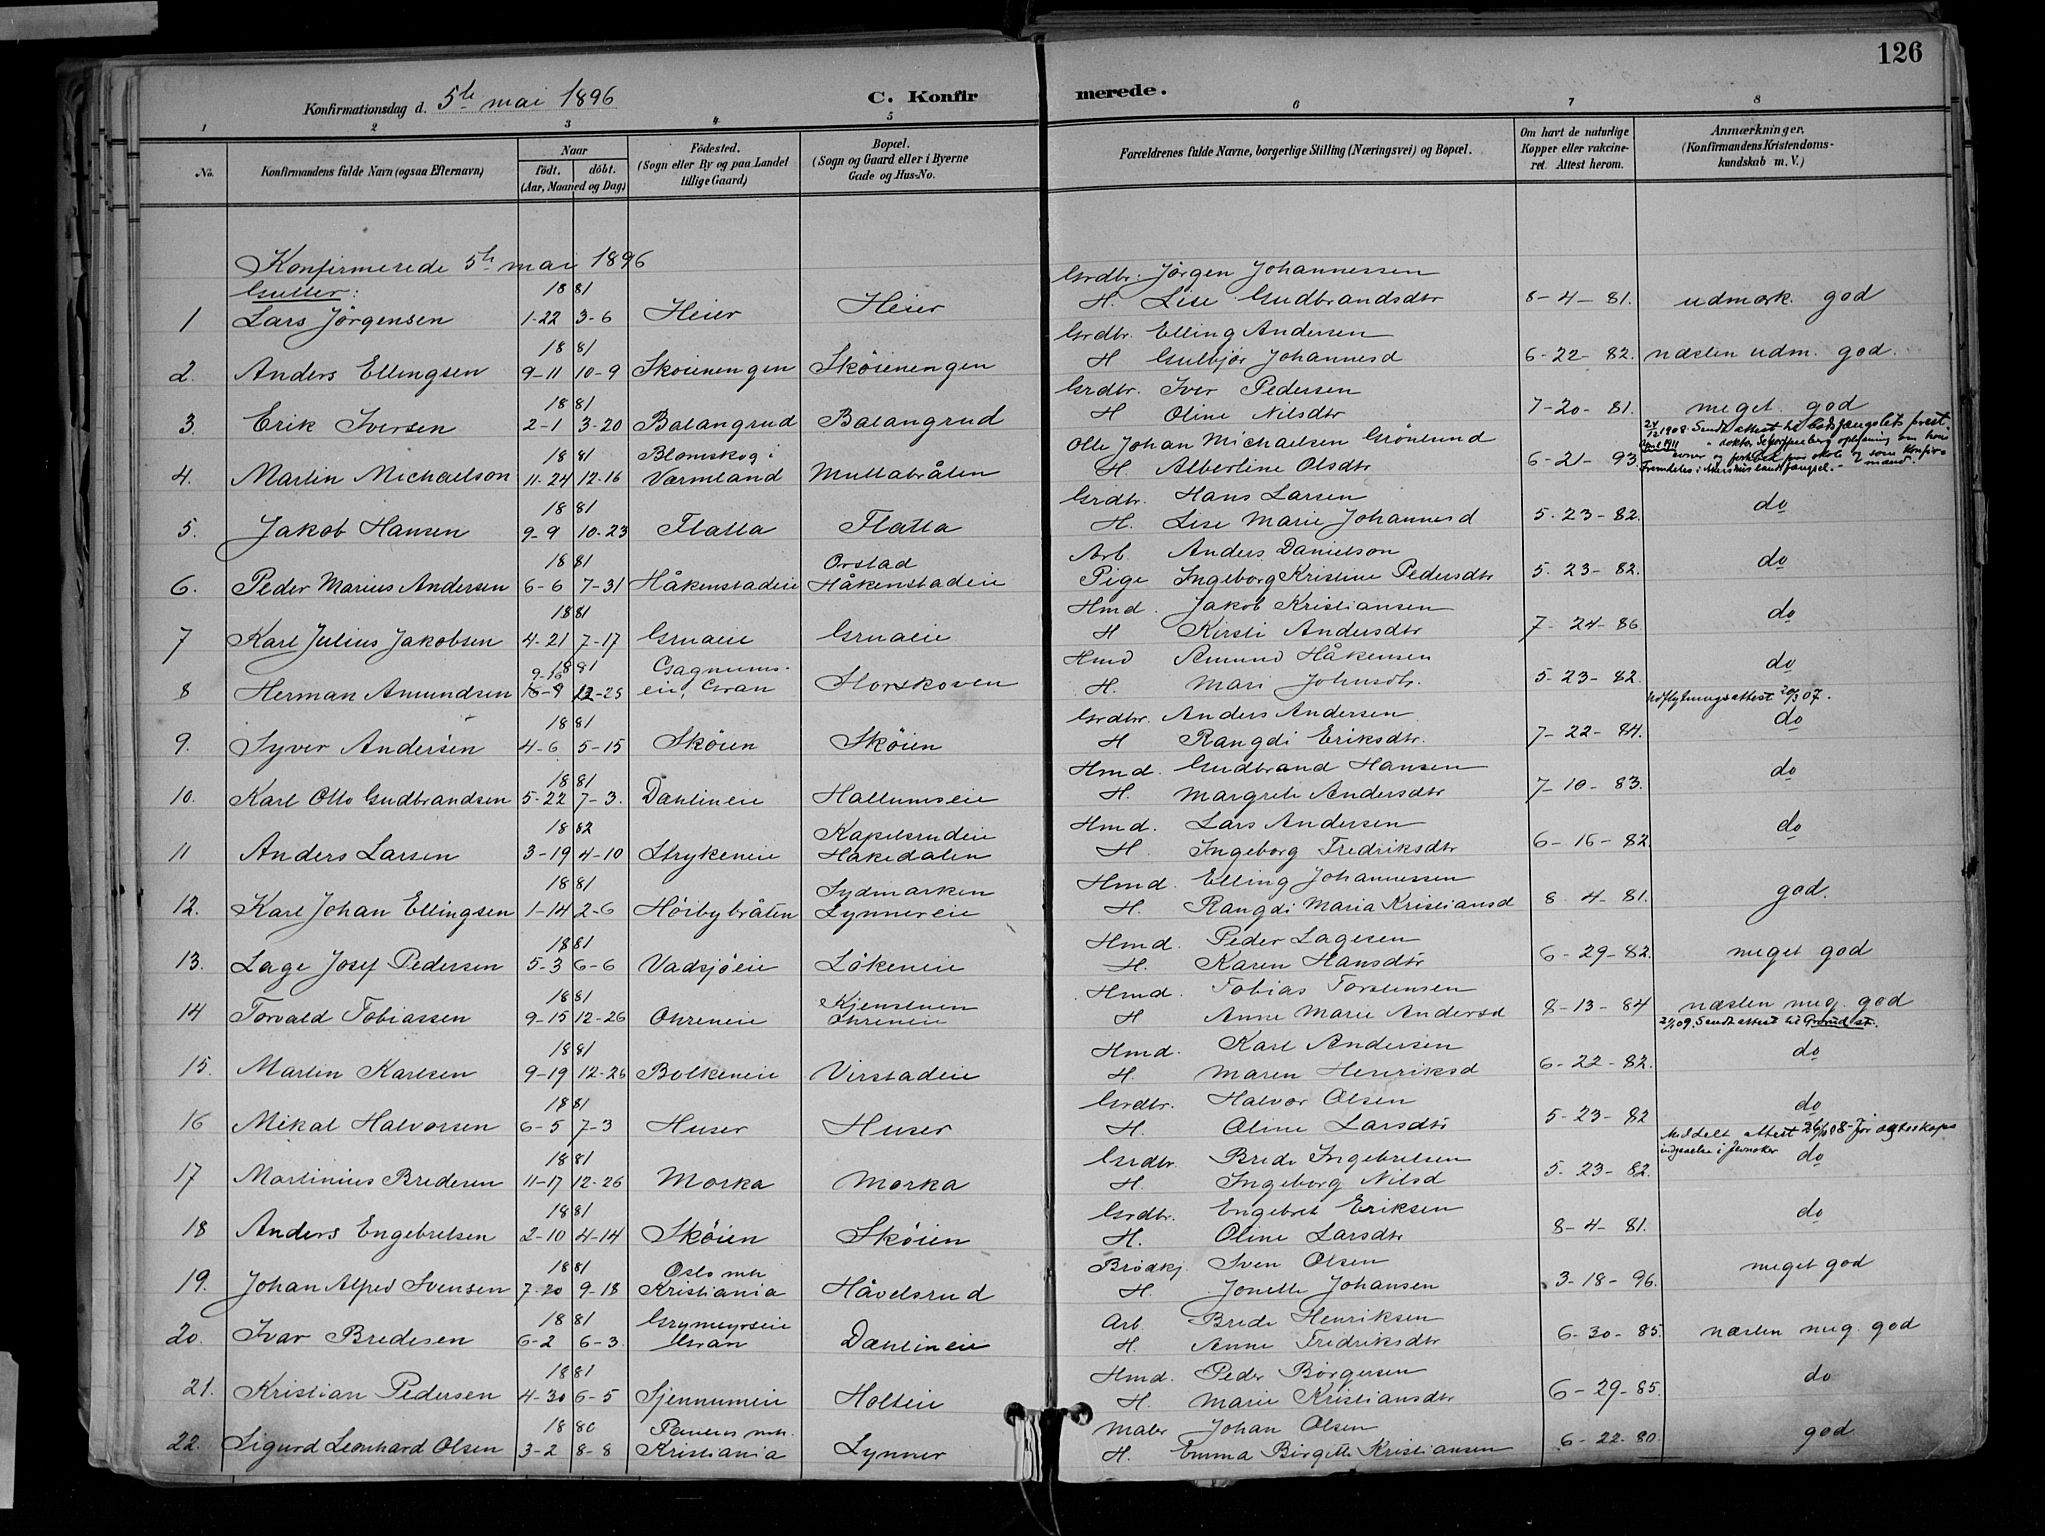 126
Konfirmationsdag d. 5te mai 1896 C. Konfirmerede.
1 2 3 4 5 6 7 8
No. Konfirmandens fulde Navn (ogsaa Efternavn) Naar født. døbt. (Aar, Maaned og Dag) Fødested. (Sogn eller By og paa Landet tillige Gaard) Bopæl. (Sogn og Gaard eller i Byerne Gade og Hus-No. Forældrenes fulde Navne, borgerlige Stilling (Næringsvei) og Bopæl. Om havt de naturlige Kopper eller vakcineret. Attest herom. Anmærkninger. (Konfirmandens Kristendomskundskab m. V.)
Konfirmerede 5te mai 1896
Gutter: 1881 Grdbr. Jørgen Johannessen
1 Lars Jørgensen 1-22 3-6 Heier Heier H. Lise Gudbrandsdtr 8-4-81. udmærk. god
1881 Grdbr. Elling Andersen
2. Anders Ellingsen 9-11 10-9 Skøienengen Skøienengen H Gulbjør Johannesd 6-22-82. næsten udm. god.
1881 Grdbr. Iver Pedersen
3. Erik Iversen 2-1 3-20 Balangrud Balangrud H Oline Nilsdtr 7-20-81. meget god
1881 Blomskog i Olle Johan Michaelsen Grönlund
4. Martin Michaelson 11-24 12-16 Værmland Mullabråten H. Albertine Olsdtr 6-21-93
1881 Grdbr. Hans Larsen
5. Jakob Hansen 9-9 10-23 Flatla Flatla H. Lise Marie Johannesd 5-23-82. do
1881 Orstad Arb. Anders Danielson
6. Peder Marius Andersen 6-6 7-31 Håkenstadeie Håkenstadeie Pige Ingeborg Kristine Pedersdtr 5-23-82. do
1881 Hmd. Jakob Kristiansen
7 Karl Julius Jakobsen 4-21 7-17 Gruaeie Gruaeie H Kirsti Andersdtr 7-24-86 do
1881 Gagnums- Hmd Amund Håkensen
8 Herman Amundsen 9-16 12-25 eie, Gran Storskoven H. Mari Johnsdtr. 5-23-82. do
Udflytningsattest 20/3 07.
1881 Grdbr. Anders Andersen
9. Syver Andersen 4-6 5-15 Skøien Skøien H Rangdi Eriksdtr. 7-22-84. do
1881 Hmd. Gudbrand Hansen
10. Karl Otto Gudbrandsen 5-22 7-3. Dæhlineie Hallumseie H. Margrete Andersdtr 7-10-83. do
1882 Kapelsrudeie Hmd. Lars Andersen
11 Anders Larsen 3-19 4-10 Strykeneie Hakedalen H. Ingeborg Fredriksdtr 6-16-82. do
1881 Sydmarken Hmd. Elling Johannessen
12. Karl Johan Ellingsen 1-14 2-6 Høibybråten Lynnereie H. Rangdi Maria Kristiansd 8-4-81. god.
1881 Hmd. Peder Lagesen
13. Lage Josef Pedersen 5-3 6-6 Vadsjøeie Løkeneie H. Karen Hansdtr 6-29-82. meget god
1881 Kjenstuen Hmd. Tobias Torstensen
14 Torvald Tobiassen 9-15 12-26 Ohreneie Ohreneie H Anne Marie Andersd 8-13-84 næsten meg. god
1881 Hmd. Karl Andersen
15. Martin Karlsen 9-19 12-26 Bolkeneie Virstadeie H. Maren Henriksd 6-22-82. do
1881 Grdbr. Halvor Olsen
16 Mikal Halvorsen 6-5 7-3 Huser Huser H. Oline Larsdtr 5-23-82 do
1881 Grdbr. Brede Ingebretsen
17 Martinius Bredesen 11-17 12-26 Morka Morka H. Ingeborg Nilsd 5-23-82. do
1881 Grdbr. Engebret Eriksen
18 Anders Engebretsen 2-10 4-14 Skøien Skøien H. Oline Larsdtr 8-4-81. do
1881 Oslo mh Brødkj. Sven Olsen
19. Johan Alfred Svensen 7-20 9-18 Kristiania Håvelsrud H. Jonette Johansen 3-18-96. meget god
1881 Grymyrseie Arb. Brede Henriksen
20. Ivar Bredesen 6-2 6-3 Gran Dæhlineie H. Anne Fredriksdtr 6-30-85. næsten meg. god
1881 Hmd. Peder Børgersen
21. Kristian Pedersen 4-30 6-5 Sjennumeie Holteie H. Marie Kristiansdtr 6-29-85. do
1880 Paulus mh. Maler Johan Olsen
22. Sigurd Leonhard Olsen 3-2 8-8 Kristiania Lynner H. Emma Birgitte Kristiansen 6-22-80. god